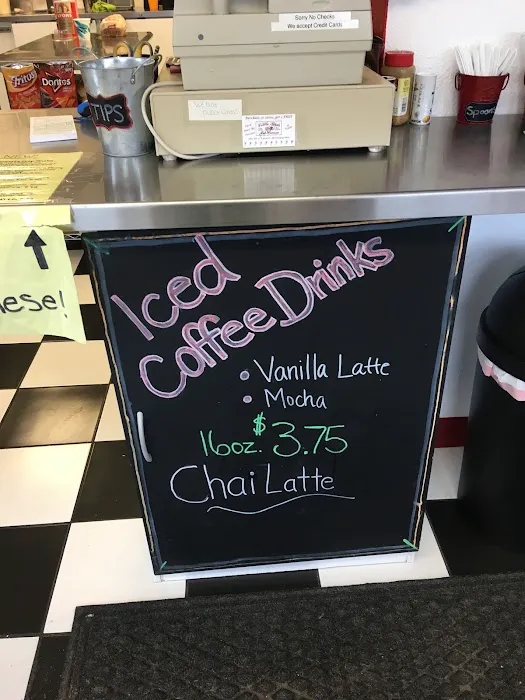 Sorry No Checks
We accept Credit Cards
Fritos
Doritos
TIPS
Spoons
ese!
Iced
Coffee Drinks
• Vanilla Latte
• Mocha
16oz. $3.75
Chai Latte